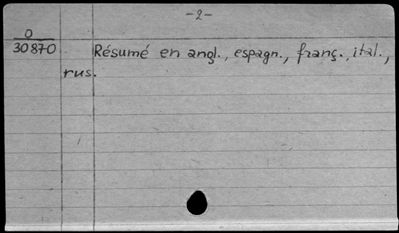 -2-
O
30870
Résumé en angl., espagn., franç., ital.,
rus.